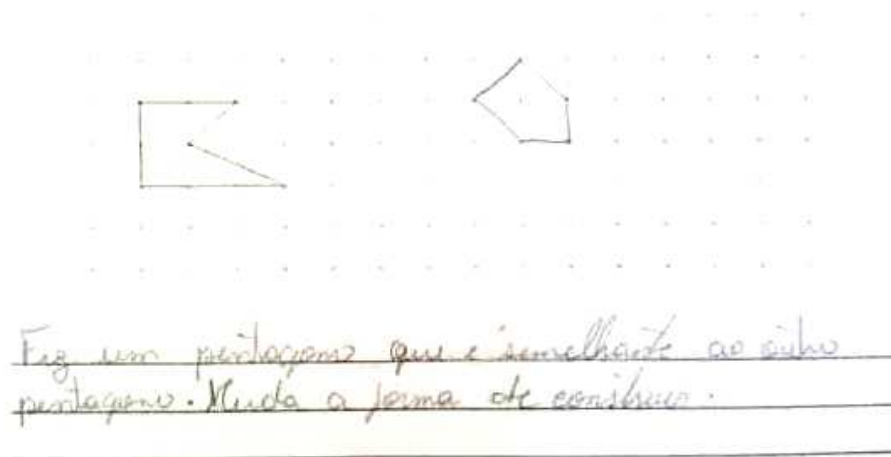 Fiz um pentagono que é semelhante ao outro
pentagono. Muda a forma de construir.